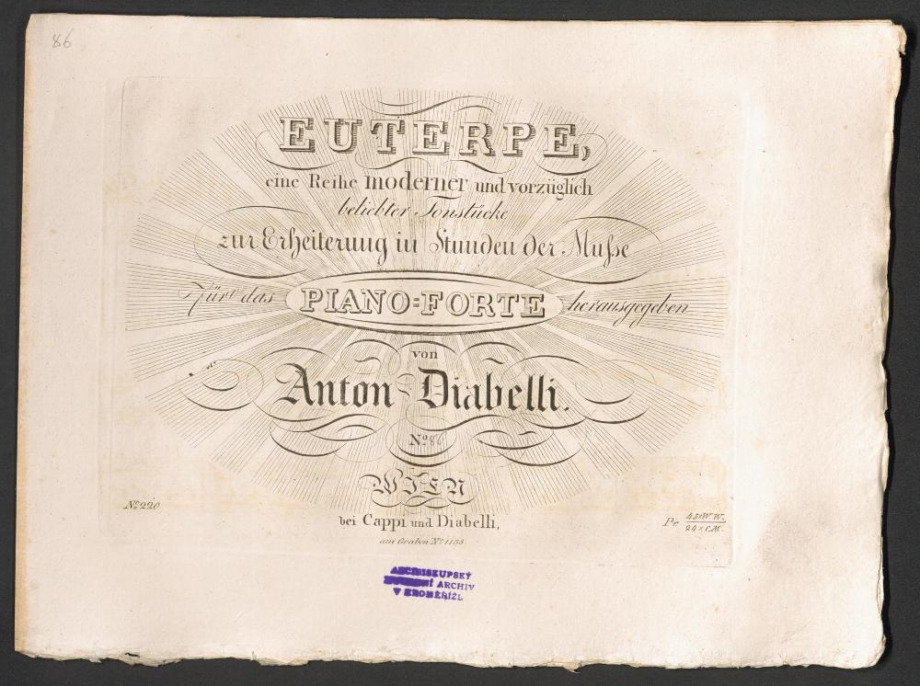 86
EUTERPE,
eine Reihe moderner und vorzüglich
beliebter Tonstücke
zur Erheiterung in Stunden der Muſse
Für das PIANO=FORTE herausgegeben
von
Anton Diabelli.
No. 86
WIEN
No. 220
bei Cappi und Diabelli,
am Graben No. 1133
Pr. 24 x C.M.
ARCIBISKUPSKÝ
ARCHIV
V KROMĚŘÍŽI.